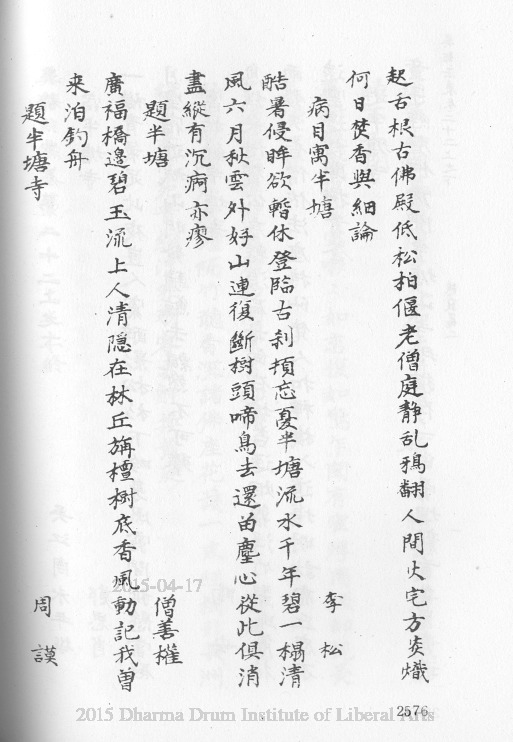 起舌根古佛殿低松柏偃老僧庭靜乱鴉翻人間火宅方炎熾
何日焚香與細論
病目寓半塘 李松
酷暑侵眸欲暫休登臨古刹頓忘憂半塘流水千年碧一榻清
風六月秋雲外好山連復斷樹頭啼鳥去還留塵心從此俱消
盡縱有沉痾亦瘳
題半塘 僧善權
廣福橋邊碧玉流上人清隱在林丘旃檀樹底香風動記我曽
来泊釣舟
題半塘寺 周謨
2015-04-17
2576
2015 Dharma Drum Institute of Liberal Arts